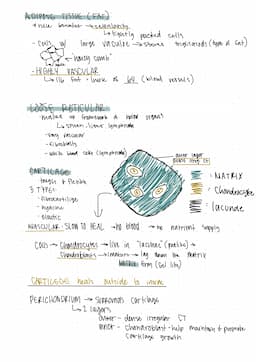 ADIPOSE TISSUE (FAT)
cellularity
↳ tightly packed cells
- cells w/ large vacuole → stores triglycerides (type of fat)
"honey comb"
- HIGHLY VASCULAR
↳ 1 lb fat = 1 mile of (blood vessels)
LOOSE RETICULAR
- makes up framework of major organs
↳ spleen, liver, lymph nodes
- very vascular
- fibroblasts
- white blood cells (lymphocytes)
outer layer
dense irreg CT
CARTILAGE
tough & flexible
3 TYPES:
- fibrocartilage
- hyaline
- elastic
= MATRIX
= Chondrocyte
= lacunae
AVASCULAR - SLOW TO HEAL → no blood → no nutrient supply
Cells → Chondrocytes → live in "lacunae" (pockets)
Chondroblasts → lay down the matrix
firm (gel like)
CARTILAGE: heals outside to inside
PERICHONDRIUM → surrounds cartilage
↳ 2 layers
outer - dense irregular CT
inner - chondroblast - help maintain & promote
cartilage growth